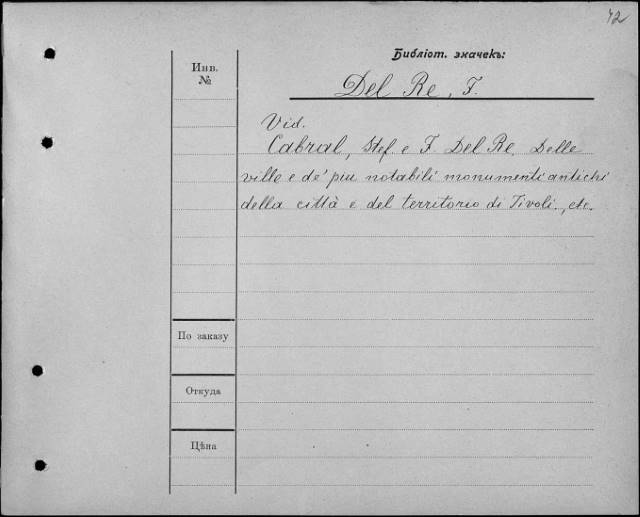 42
Библіот. значекъ:
Инв.
№
Del Re, F.
Vid.
Cabral, Stef. e F. Del Re, Delle
ville e de' piu notabili monumenti antichi
della città e del territorio di Tivoli, etc.
По заказу
Откуда
Цѣна